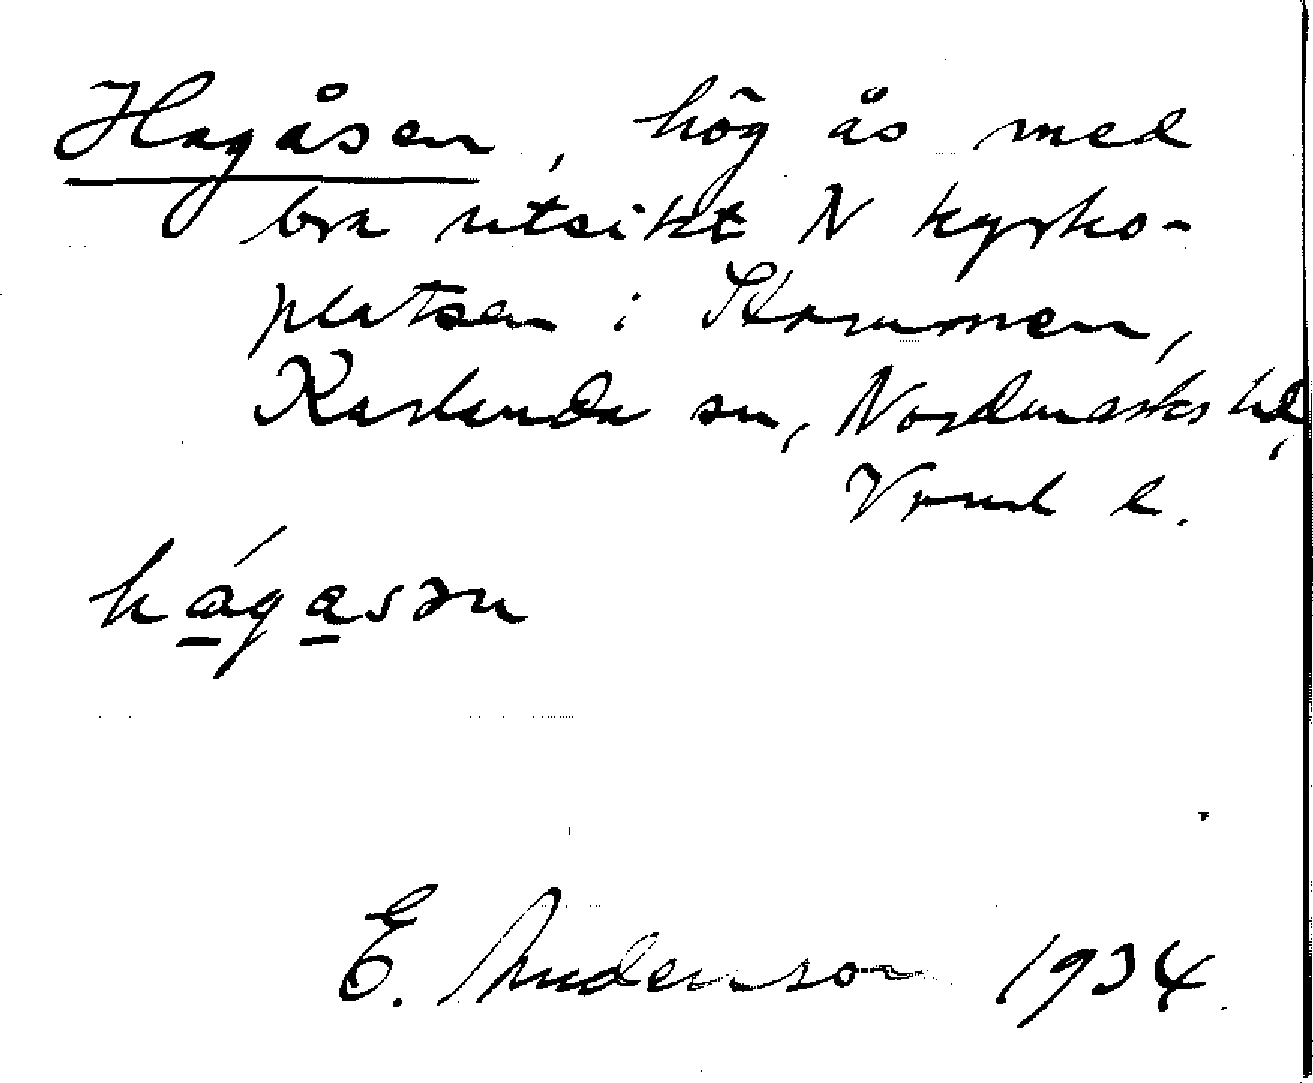 Hagåsen, hög ås med
bra utsikt N kyrko-
platsen i Strommen,
Karlanda sn, Nordmarks hd,
Vrml l.
hágasən
E. Andersson 1934.